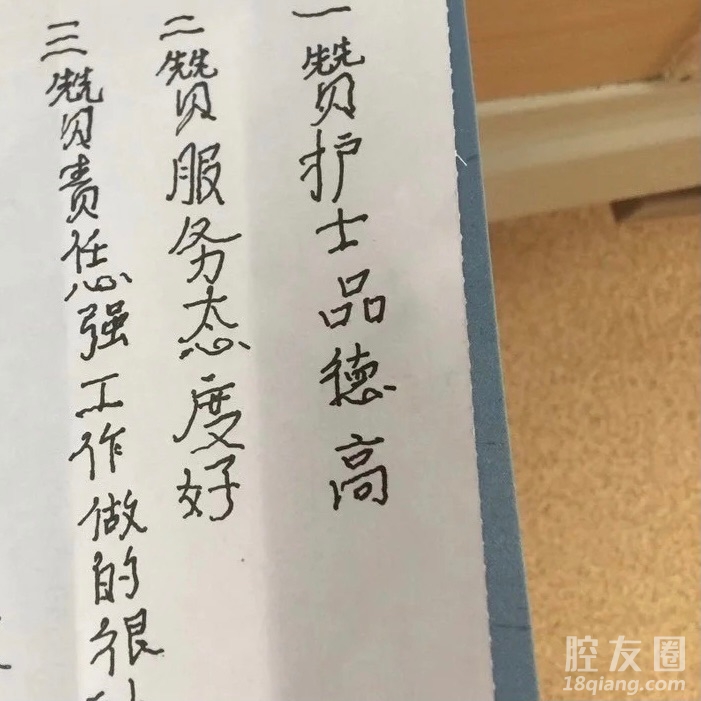 一赞护士品德高
二赞服务态度好
三赞责任强工作做的很
腔友圈
18qiang.com